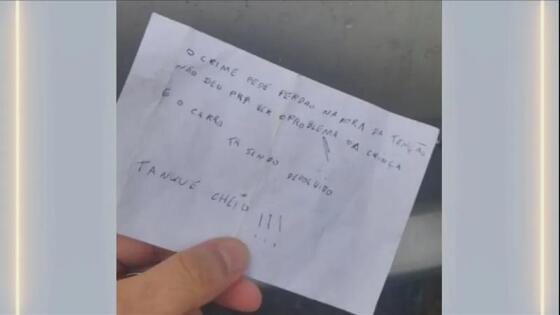 O CRIME PEDE PERDÃO NA HORA DA TENÇÃO
NÃO DEU PRA VER O PROBLEMA DA CRIANÇA
E O CARRO
TA SENDO DEVOLVIDO
TANQUE CHEIO !!!